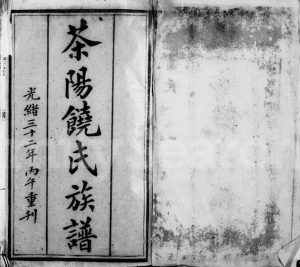 茶陽饒氏族譜
光緒三十二年丙午重刊